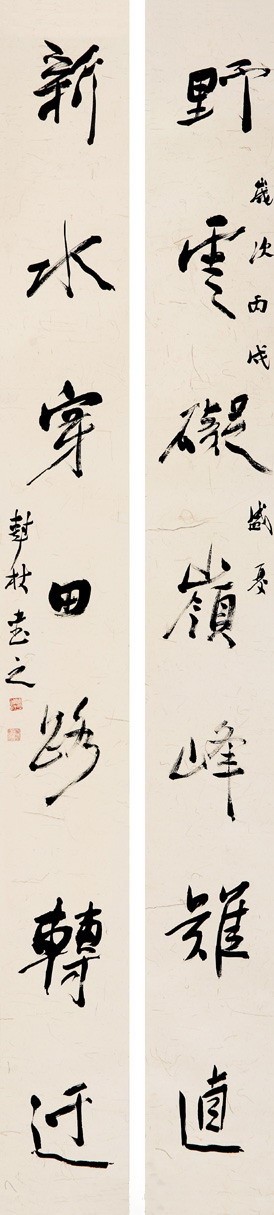 野雲礙嶺峰難直
歲次丙戌盛夏
新水穿田路轉迂
書之